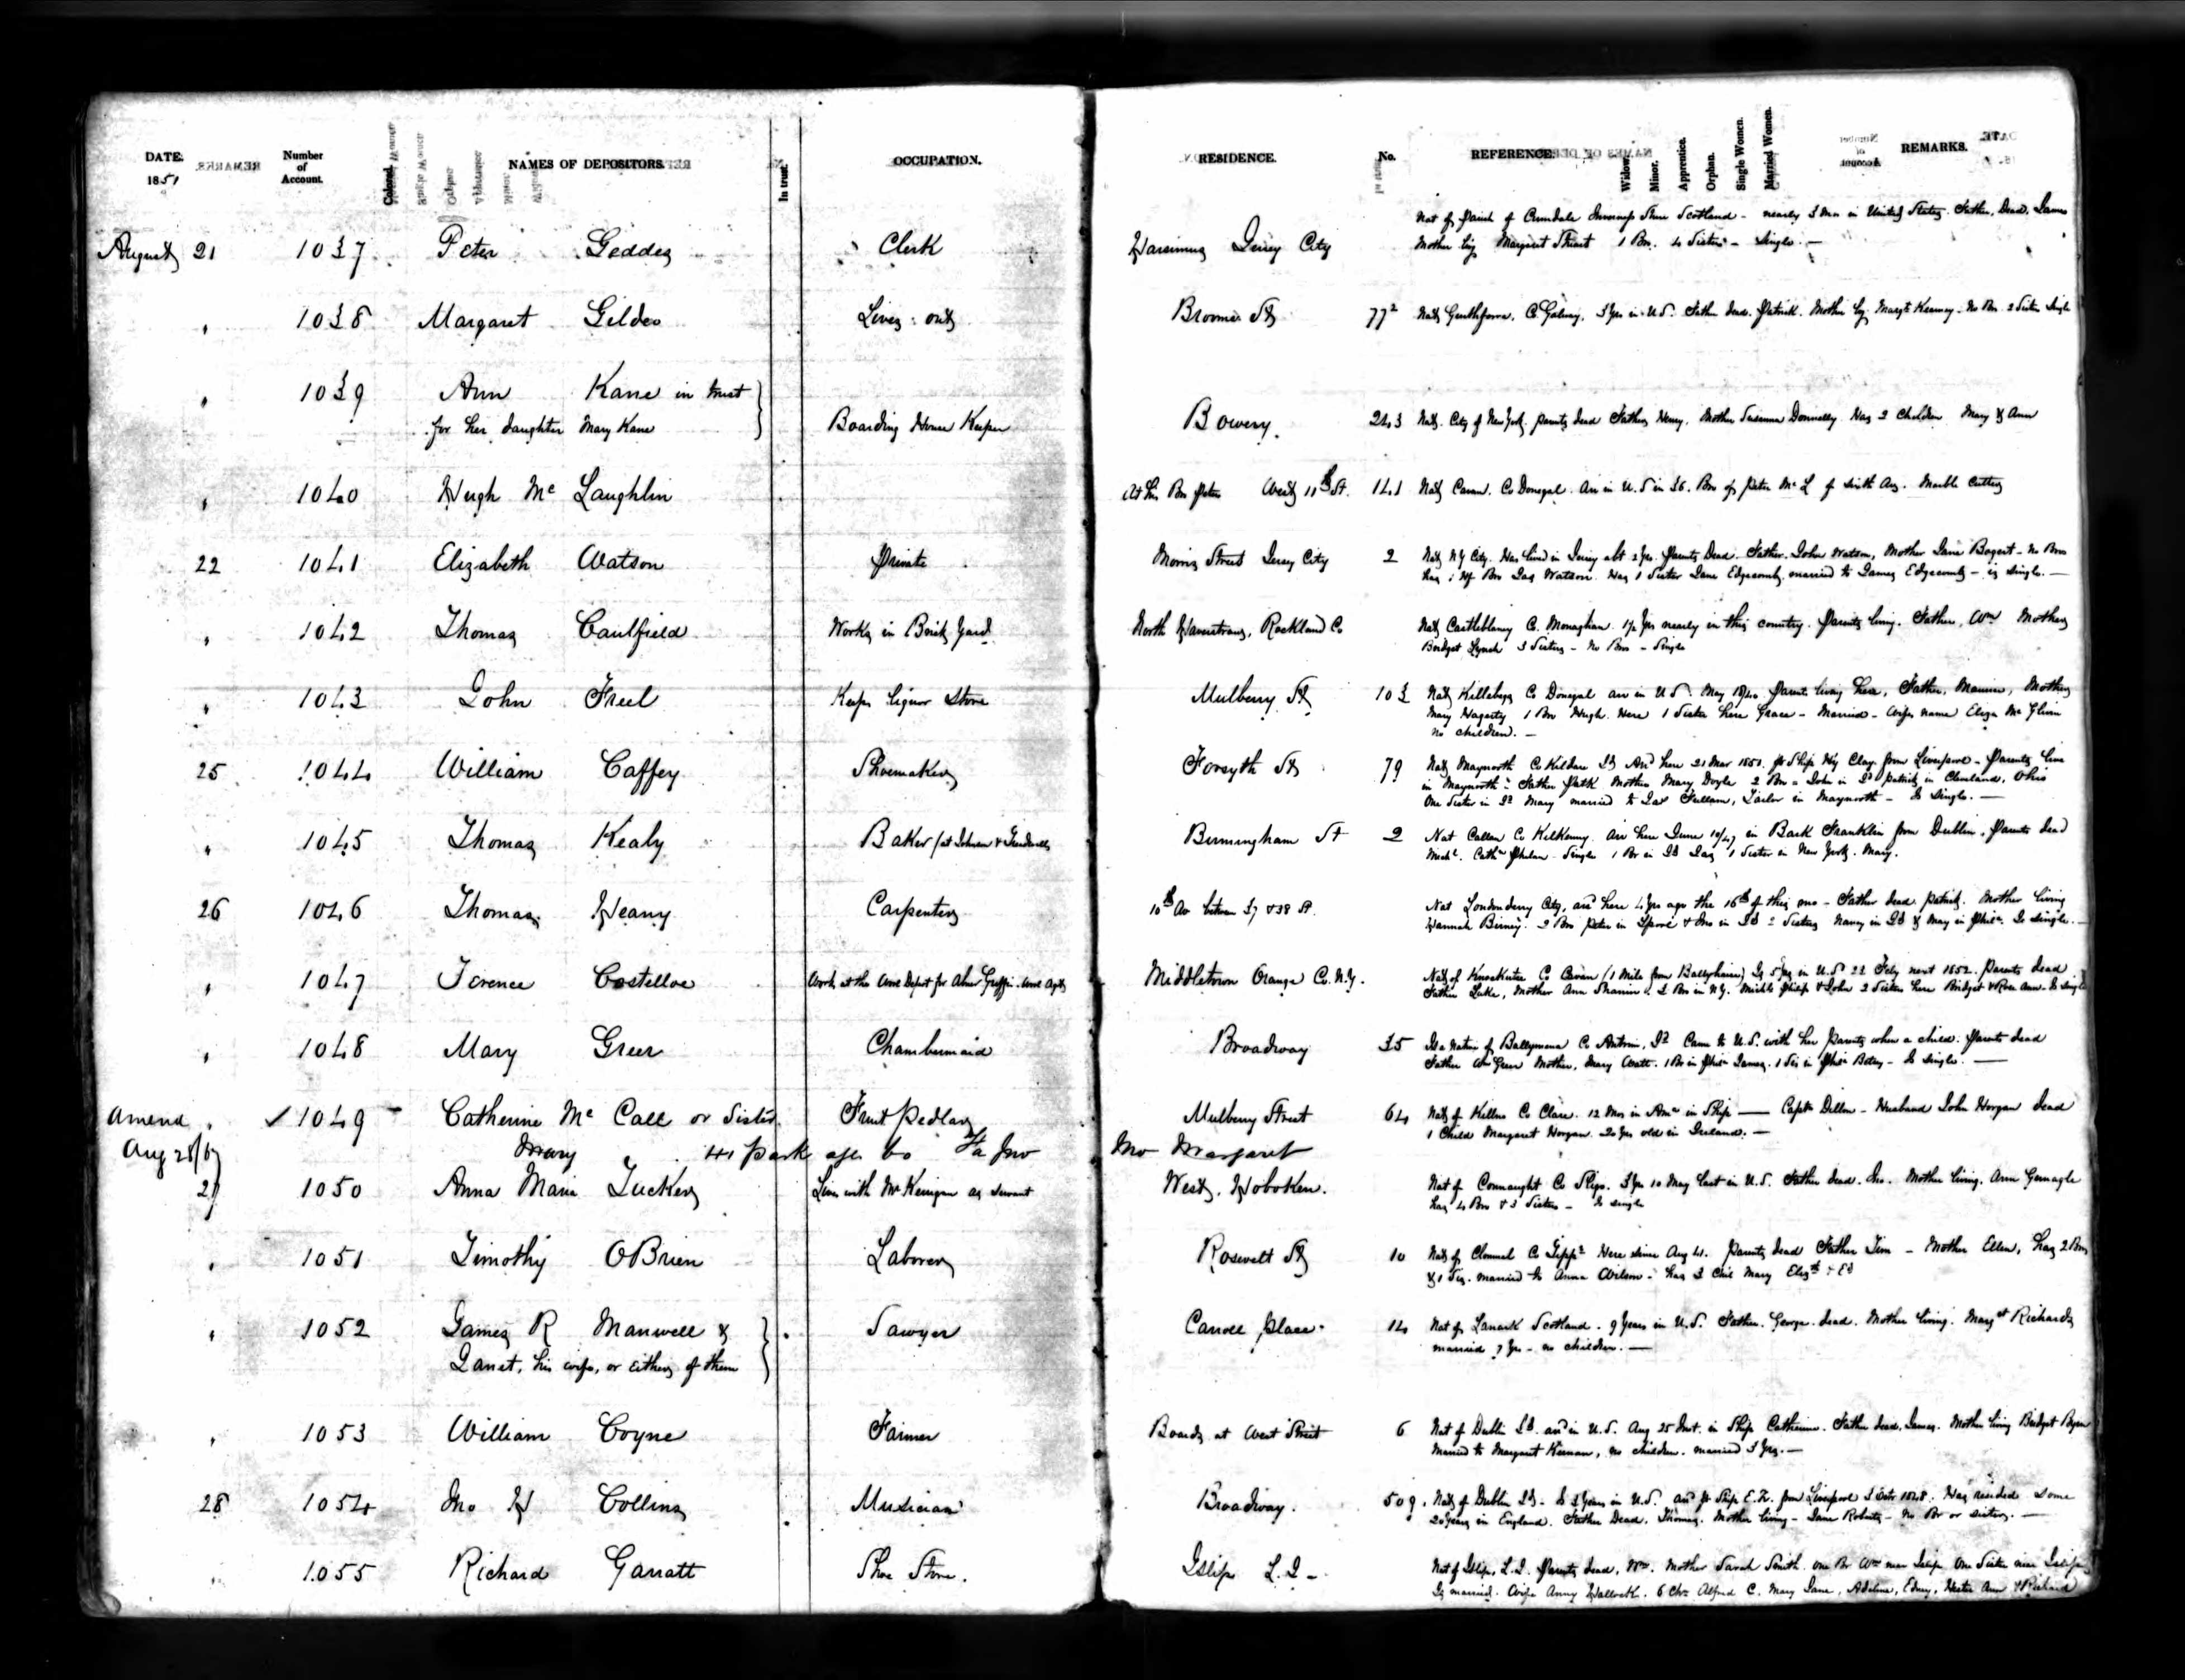 DATE. 1851 Number of Account. Colored. NAMES OF DEPOSITORS. In trust. OCCUPATION. RESIDENCE. No. REFERENCE. Widow. Minor. Apprentice. Orphan. Single Women. Married Women. REMARKS.
Nat of Parish of Inverness Shire Scotland - nearly 3 Mos in United States. Father, Dead, James
August 21 1037 Peter Geddes Clerk Harsimus Jersey City Mother lig Margaret Stuart 1 Bro. 4 Sisters - Single. -
" 1038 Margaret Gildea Lives out Broome St 77½ Nat Co Galway, 3 Yrs in U.S. Father dead. Patrick. Mother lig. Margt Kearney - No Bro. 2 Sisters Single
" 1039 Ann Kane in trust
for her daughter Mary Kane Boarding House Keeper Bowery. 243 Nat. City of New York, parents dead Father, Henry. Mother Susanna Donnelly. Has 2 Children Mary & Ann
" 1040 Hugh Mc Laughlin At his Bro Peter West 11th St. 141 Nat Cavan. Co Donegal. Arr in U.S in 36. Bro of Peter Mc L of Sixth Av. Marble Cutter
22 1041 Elizabeth Watson Private Morris Street Jersey City 2 Nat N.Y City. Has lived in Jersey abt 2 Yrs. Parents Dead. Father. John Watson, Mother Jane Bogert - no Bros
has 1 Hf Bro Jas Watson. Has 1 Sister Jane Edgecomb, married to James Edgecomb - is single. -
" 1042 Thomas Caulfield Works in Brick Yard North Haverstraw, Rockland Co Nat Castleblaney Co. Monaghan. Yrs nearly in this country. Parents living. Father, Wm Mother
Bridget Lynch 3 Sisters - No Bros - Single
" 1043 John Freel Keeps liquor Store Mulberry St 103 Nat Killebegs Co Donegal arr in U S. May Parents living here, Father, Manus, Mother
Mary Hagarty 1 Bro Hugh. Here 1 Sister here Grace - Married - wifes name Eliza Mc Glinn
no children. -
25 1044 William Caffey Shoemaker Forsyth St 79 Nat Maynooth Co Kildare Id Arrd here 21 Mar 1851. pr Ship Hy Clay from Liverpool - Parents live
in Maynooth - Father Patk Mother Mary Doyle 2 Bro - John in Id Patrick in Cleveland, Ohio
One Sister in Id Mary married to Jas Fullam, Tailor in Maynooth - Is Single. -
" 1045 Thomas Kealy Baker (at Birmingham St 2 Nat Callan Co Kilkenny. Arr here June 10/47 in Bark Franklin from Dublin. Parents dead
Michl. Cathn Phelan - Single 1 Br in Id Jas 1 Sister in New York. Mary.
26 1046 Thomas Heany Carpenter 10th Av between 37 & 38 St. Nat Londonderry City, arrd here 4 Yrs ago the 16th of this mo - Father dead. Patrick. Mother living
Hannah Birney. 2 Bro Peter in & Jno in Id 2 Sisters Nancy in Id & Mary in Phila. Is single. -
" 1047 Terence Costelloe Work at the Depot for Abner Griffin. Middletown Orange Co. N.Y. Nat of Co Cavan (1 Mile from Ballyhaise) Is 5 Yrs in U.S 22 Feby next 1852. Parents dead.
Father Luke, Mother Ann 3 Bro in N.Y. Michl Philip & John 2 Sisters here Bridget & Rose Ann. Is Single
" 1048 Mary Greer Chambermaid Broadway 35 Is a Native of Ballymena Co Antrim, Id Came to U.S. with her parents when a child. Parents dead
Father Wm Greer Mother, Mary Watt. 1 Bro in Phila James. 1 Sis in Phila Betsy - Is single. -
Amend " ✓ 1049 - Catherine Mc Call or Sister Fruit Pedlar Mulberry Street 64 Nat of Co Clare. 12 Mos in Ama in Ship — Captn Dillon - Husband John Horgan dead
1 Child Margaret Horgan. 20 Yrs old in Ireland. -
Aug 28/67 Mary 41 Park age 60 Fa Jno Mo Margaret
27 1050 Anna Maria Tucker Lives with Mr Kerrigan as servant West, Hoboken. Nat of Connaught Co Sligo. 3 Yrs 10 May last in U.S. Father dead. Jno. Mother living. Ann
has 4 Bro & 3 Sisters - Is single
" 1051 Timothy OBrien Laborer Rosevelt St 10 Nat of Clonmel Co Tippy Here since Aug 41. Parents dead Father Tim - Mother Ellen, has 2 Bros
& 1 Sis. married to Anna Wilson - has 3 Chil Mary Elizth & Ed
" 1052 James R Manwell &
Janet, his wife, or either of them Sawyer Carroll Place 14 Nat of Lanark Scotland. 9 years in U.S. Father. George. dead. Mother living. Margt Richards
married 7 Yrs - no children. -
" 1053 William Coyne Farmer Boards at West Street 6 Nat of Dublin Id. arrd in U.S. Aug 25 Inst. in Ship Catherine. Father dead, James. Mother living Bridget
Married to Margaret Kiernan, no children. married 3 Yrs. -
28 1054 Jno H Collins Musician Broadway. 509 Nat of Dublin Id - Is 3 years in U.S. arrd pr Ship E.Z. from Liverpool 3 Octr 1848. Has resided some
20 Years in England. Father Dead. Thomas. Mother living - Jane Roberts - No Br or sisters. -
" 1055 Richard Garratt Shoe Store. Islip L.I - Nat of Islip, L.I. Parents dead, Wm. Mother Sarah Smith. one Br Wm near Islip One Sister near Islip
Is married. Wife Anny 6 Chn Alfred C. Mary Jane, Adeline, Edny, Hester Ann & Richard